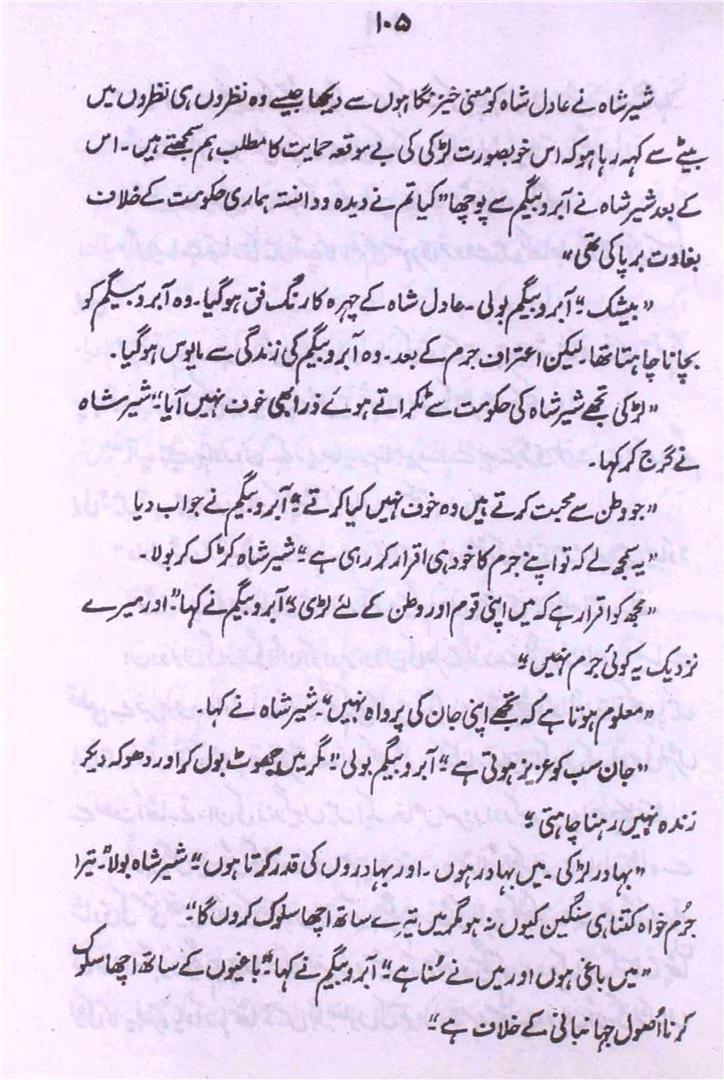 ۱۰۵
شیر شاہ نے عادل شاہ کو معنی خیز نگاہوں سے دیکھا جیسے وہ نظروں ہی نظروں میں
بیٹے سے کہہ رہا ہو کہ اس خوبصورت لڑکی کی بے موقعہ حمایت کا مطلب ہم سمجھتے ہیں۔ اس
کے بعد شیر شاہ نے آبرو بیگم سے پوچھا "کیا تم نے دیدہ و دانستہ ہماری حکومت کے خلاف
بغاوت برپا کی تھی"
"بیشک" آبرو بیگم بولی۔ عادل شاہ کے چہرہ کا رنگ فق ہو گیا۔ وہ آبرو بیگم کو
بچانا چاہتا تھا۔ لیکن اعترافِ جرم کے بعد۔ وہ آبرو بیگم کی زندگی سے مایوس ہو گیا۔
"لڑکی تجھے شیر شاہ کی حکومت سے ٹکراتے ہوئے ذرا بھی خوف نہیں آیا" شیر شاہ
نے گرج کر کہا۔
"جو وطن سے محبت کرتے ہیں وہ خوف نہیں کیا کرتے" آبرو بیگم نے جواب دیا
"یہ سمجھ لے کہ تو اپنے جرم کا خود ہی اقرار کر رہی ہے" شیر شاہ کڑک کر بولا۔
"مجھ کو اقرار ہے کہ میں اپنی قوم اور وطن کے لئے لڑی" آبرو بیگم نے کہا "اور میرے
نزدیک یہ کوئی جرم نہیں"
"معلوم ہوتا ہے کہ تجھے اپنی جان کی پرواہ نہیں" شیر شاہ نے کہا۔
"جان سب کو عزیز ہوتی ہے" آبرو بیگم بولی "مگر میں جھوٹ بول کر اور دھوکہ دیکر
زندہ نہیں رہنا چاہتی"
"بہادر لڑکی۔ میں بہادر ہوں۔ اور بہادروں کی قدر کرتا ہوں" شیر شاہ بولا "تیرا
جُرم خواہ کتنا ہی سنگین کیوں نہ ہو مگر میں تیرے ساتھ اچھا سلوک کروں گا"
"میں باغی ہوں اور میں نے سُنا ہے" آبرو بیگم نے کہا "باغیوں کے ساتھ اچھا سلوک
کرنا اُصول جہانبانی کے خلاف ہے"